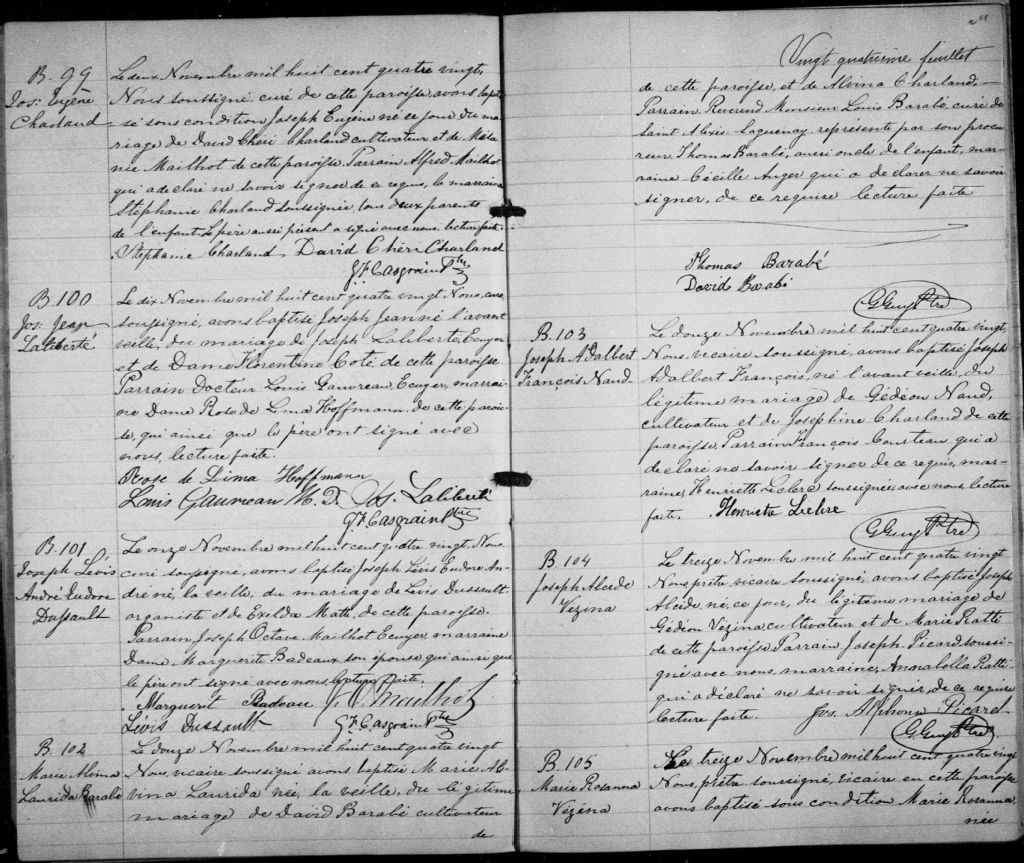 B. 99
Jos: Eugène
Charland
Le deux Novembre mil huit cent quatre vingt,
Nous soussigné, curé de cette paroisse, avons bapti-
sé sous condition, Joseph Eugène né ce jour du ma-
riage de David Chéri Charland cultivateur et de Méla-
nie Mailhot de cette paroisse. Parrain Alfred Mailhot
qui a declaré ne savoir signer de ce requis, la marraine
Stephanie Charland soussignée, tous deux parents
de l'enfant. Le père aussi présent a signé avec nous, lecture faite.
Stephanie Charland David Chéri Charland
G. F. Casgrain Ptre
B. 100
Jos: Jean
Laliberté
Le dix Novembre mil huit cent quatre vingt Nous, curé
soussigné, avons baptisé Joseph Jean né l'avant
veille, du mariage de Joseph Laliberté, Ecuyer
et de Dame Florentine Coté, de cette paroisse
Parrain Docteur Louis Gauvreau, Ecuyer, marrai-
ne Dame Rose de Lima Hoffmann, de cette parois-
se, qui ainsi que le père ont signé avec
nous, lecture faite.
Rose de Lima Hoffmann
Louis Gauvreau M. D. Jos. Laliberté
G. F. Casgrain Ptre
B. 101
Joseph Lévis
André Eudore
Dussault
Le onze Novembre mil huit cent quatre vingt, Nous
curé soussigné, avons baptisé Joseph Lévis Eudore An-
dré né, la veille, du mariage de Lévis Dussault
organiste et de Exilda Matte, de cette paroisse.
Parrain Joseph Octave Mailhot Ecuyer, marraine
Dame Marguerite Badeaux, son épouse, qui ainsi que
le père ont signé avec nous, lecture faite.
Marguerit Badeau J. O. Mailhot
Lévis Dussault G. F. Casgrain Ptre
B. 102
Marie Alvina
Laurida Barabé
Le douze Novembre mil huit cent quatre vingt
Nous, vicaire soussigné avons baptisé Marie Al-
vina Laurida née, la veille, du légitime
mariage de David Barabé cultivateur
de
Vingt quatrième feuillet
de cette paroisse, et de Alvina Charland,
Parrain Reverend Monsieur Louis Barabé, curé de
Saint Alexis Saguenay représenté par son procu-
reur Thomas Barabé, aussi oncle de l'enfant, mar-
raine Cécille Auger qui a declarer ne savoir
signer, de ce requise lecture faite
Thomas Barabé
David Barabé
G Guy Ptre
B. 103
Joseph Adalbert
François Naud
Le douze Novembre mil huit cent quatre vingt,
Nous, vicaire soussigné, avons baptisé Joseph
Adalbert François, né l'avant veille, du
légitime mariage de Gédéon Naud,
cultivateur et de Joséphine Charland de cette
paroisse, Parrain François Courteau qui a
declare ne savoir signer de ce requis, mar-
raine, Henriette Leclerc soussignée, avec nous lecture
faite. Henriette Leclerc
G Guy Ptre
B. 104
Joseph Alcide
Vezina
Le treize Novembre mil huit cent quatre vingt
Nous, prêtre, vicaire soussigné, avons baptisé Joseph
Alcide, né, ce jour, du légitime mariage de
Gédéon Vézina, cultivateur et de Marie Ratté
de cette paroisse Parrain Joseph Picard soussi-
gné avec nous, marraine, Annabella Ratté
qui a déclaré ne savoir signer, de ce requise
lecture faite. Jos. Alphonse Picard
G Guy Ptre
B. 105
Marie Rosanna
Vézina
Le treize Novembre mil huit cent quatre vingt
Nous, prêtre soussigné, vicaire en cette paroisse
avons baptisé sous condition Marie Rosanna
née